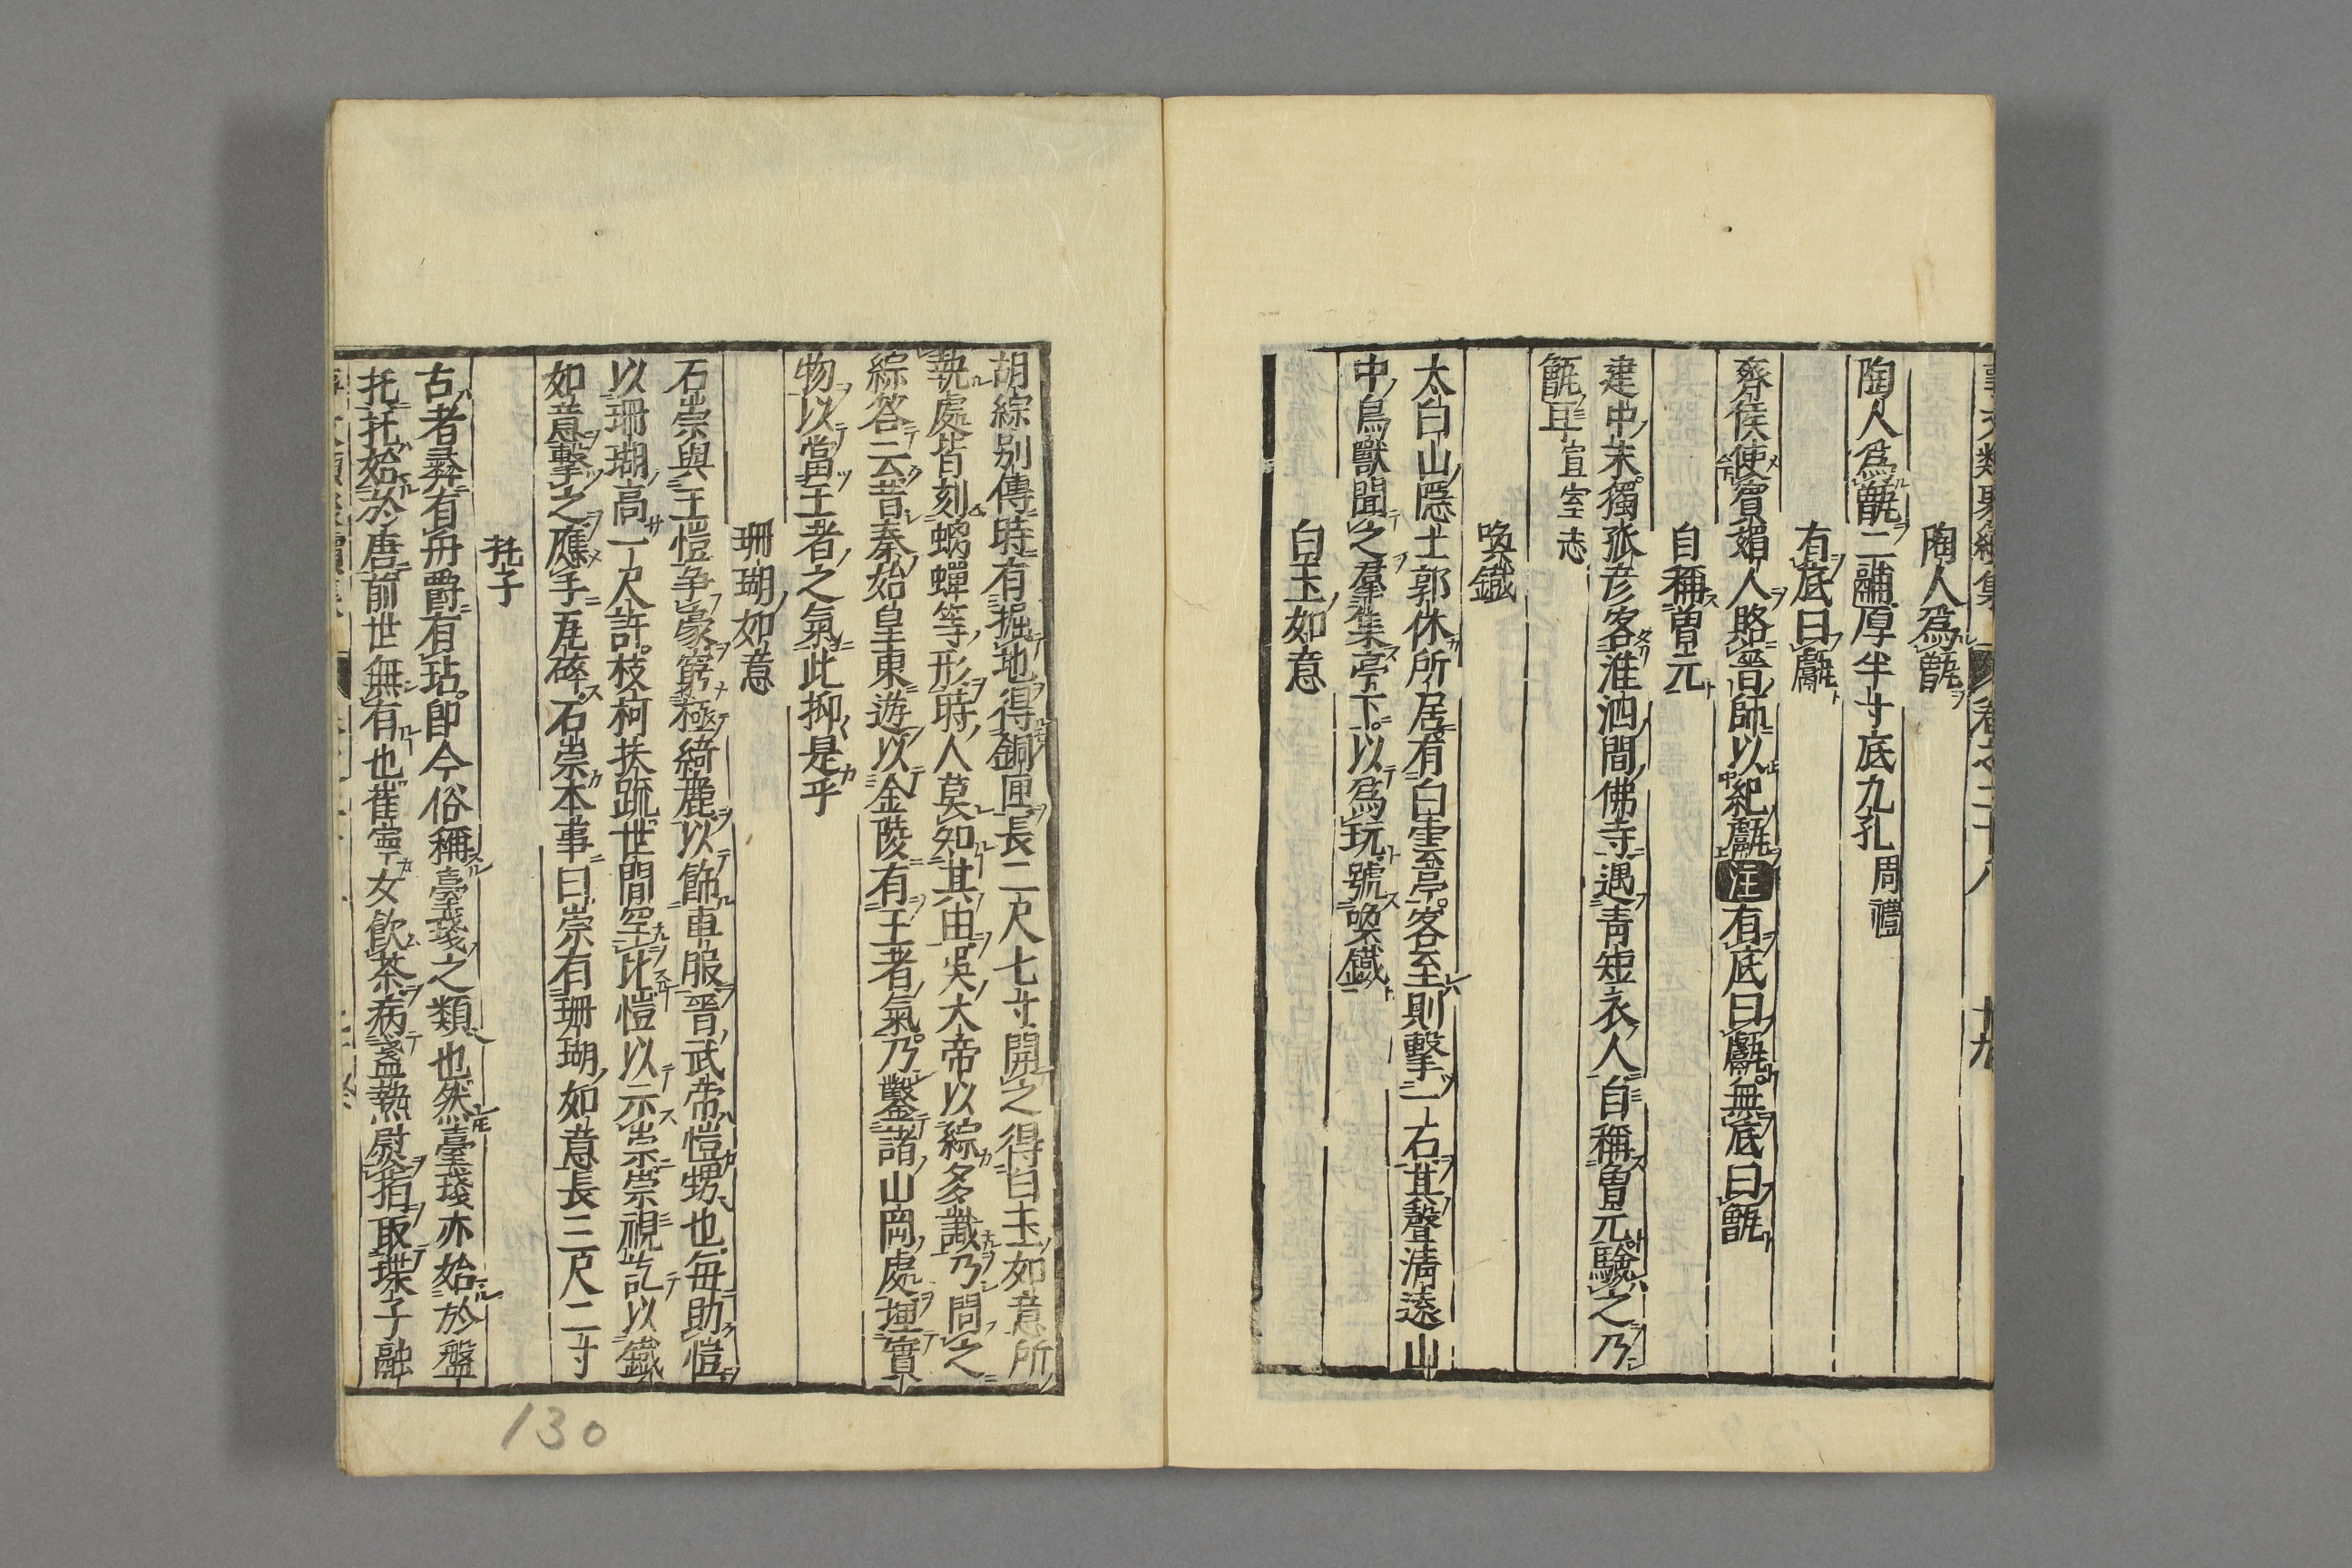 陶人爲甑
陶人爲甑二鬴厚半寸底九孔周禮
有底曰甗
齊侯使賓媚人賂晉師以紀甗注有底曰甗無底曰甑
自稱曽元
建中末獨孤彦客淮泗間佛寺遇青短衣人自稱曽元驗之乃
甑耳宣室志
喚鐵
太白山隱士郭休所居有白雲亭客至則擊一石其聲清遠山
中鳥獸聞之羣集亭下以爲玩號喚鐵
白玉如意
胡綜别傳時有掘地得銅匣長二尺七寸開之得白玉如意所
執處皆刻螭蟬等形時人莫知其由吳大帝以綜多識乃問之
綜答云昔秦始皇東遊以金陵有王者氣乃鑿諸山岡處埋寶
物以當王者之氣此抑是乎
珊瑚如意
石崇與王愷争豪窮極綺麗以飾車服晉武帝愷甥也每助愷
以珊瑚高二尺許枝柯扶疏世間罕比愷以示崇崇視訖以鐵
如意擊之應手瓦碎石崇本事曰崇有珊瑚如意長三尺二寸
托子
古者彞有舟爵有坫即今俗稱臺琖之類也然臺琖亦始於盤
托托始於唐前世無有也崔寧女飲茶病盞熱熨指取楪子融
130